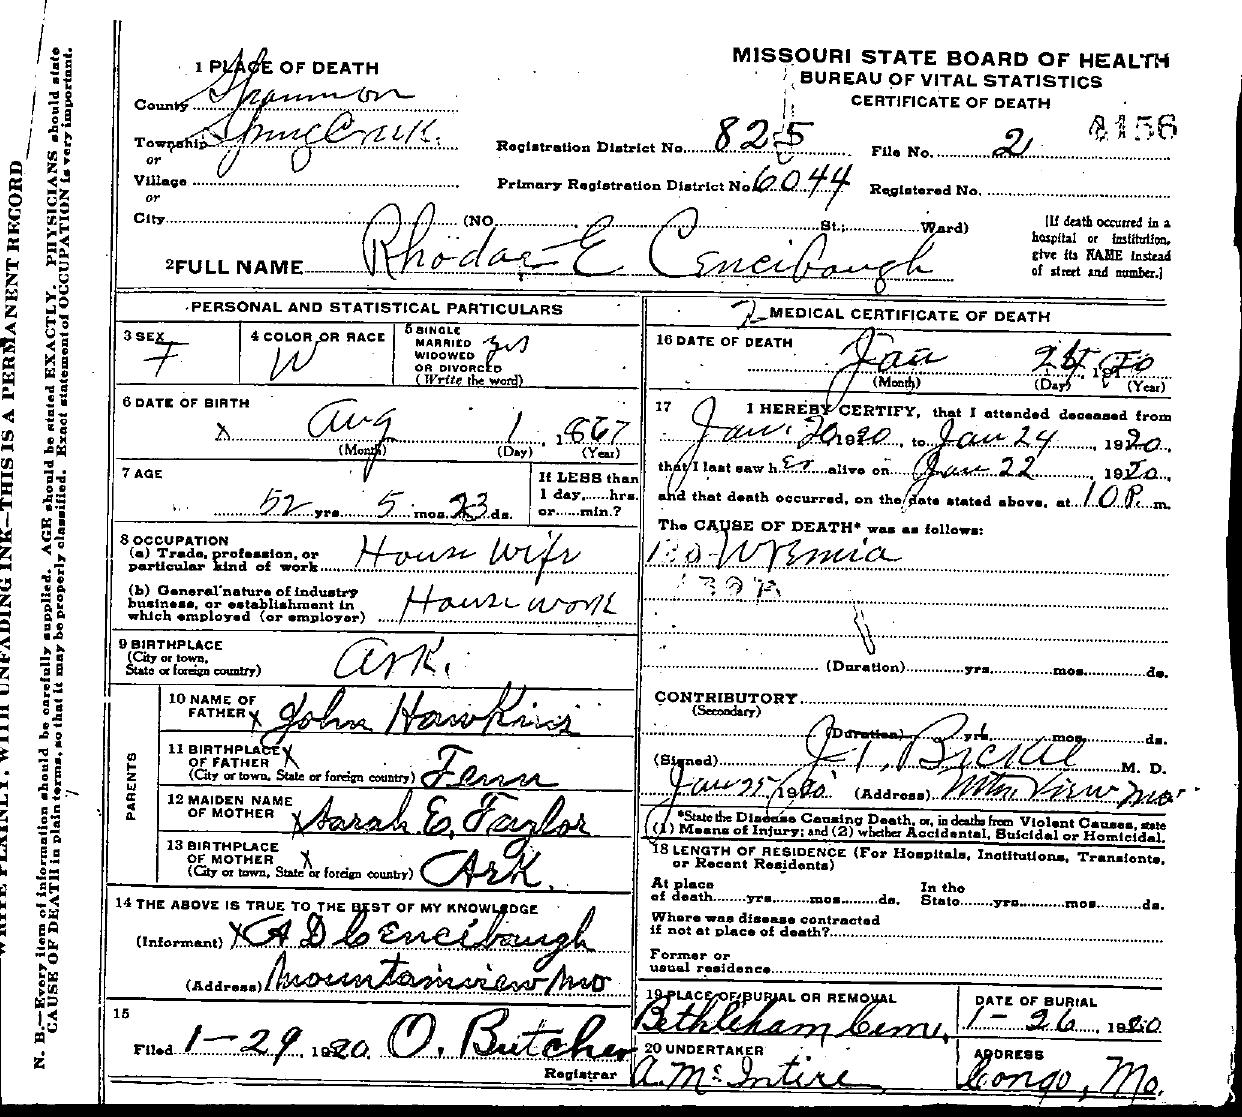 MISSOURI STATE BOARD OF HEALTH
BUREAU OF VITAL STATISTICS
CERTIFICATE OF DEATH
1 PLACE OF DEATH
County Shannon
Township Spring Creek.
or
Village
or
City (NO. St.; Ward)
Registration District No. 825 File No. 2
4156
Primary Registration District No. 6044 Registered No.
[If death occurred in a
hospital or institution,
give its NAME instead
of street and number.]
2 FULL NAME Rhodae E Cencibaugh
PERSONAL AND STATISTICAL PARTICULARS
3 SEX F
4 COLOR OR RACE W
5 SINGLE
MARRIED yes
WIDOWED
OR DIVORCED
(Write the word)
6 DATE OF BIRTH
x Aug 1, 1867
(Month) (Day) (Year)
7 AGE
52 yrs. 5 mos. 23 ds.
If LESS than
1 day,......hrs.
or......min.?
8 OCCUPATION
(a) Trade, profession, or
particular kind of work House Wife
(b) General nature of industry
business, or establishment in
which employed (or employer) House work
9 BIRTHPLACE
(City or town,
State or foreign country) Ark.
PARENTS
10 NAME OF
FATHER x John Hawkins
11 BIRTHPLACE x
OF FATHER
(City or town, State or foreign country) Tenn
12 MAIDEN NAME
OF MOTHER x Sarah E. Taylor
13 BIRTHPLACE
OF MOTHER x
(City or town, State or foreign country) Ark.
14 THE ABOVE IS TRUE TO THE BEST OF MY KNOWLEDGE
(Informant) x A D Cencibaugh
(Address) Mountainview Mo
15
Filed 1-29 1920. O. Butcher
Registrar
2 MEDICAL CERTIFICATE OF DEATH
16 DATE OF DEATH
Jan 24, 1920
(Month) (Day) (Year)
17 I HEREBY CERTIFY, that I attended deceased from
Jan. 20 1920, to Jan 24, 1920,
that I last saw her alive on Jan 22, 1920,
and that death occurred, on the date stated above, at 10 P. m.
The CAUSE OF DEATH* was as follows:
(Duration)......yrs.......mos.......ds.
CONTRIBUTORY
(Secondary)
(Duration)......yrs.......mos.......ds.
(Signed) J. T. Bickel M. D.
Jan 25, 1920 (Address) Mtn View Mo
*State the Disease Causing Death, or, in deaths from Violent Causes, state
(1) Means of Injury; and (2) whether Accidental, Suicidal or Homicidal.
18 LENGTH OF RESIDENCE (For Hospitals, Institutions, Transients,
or Recent Residents)
At place In the
of death......yrs.......mos.......ds. State......yrs.......mos.......ds.
Where was disease contracted
if not at place of death?
Former or
usual residence
19 PLACE OF BURIAL OR REMOVAL
Bethleham Cem.
DATE OF BURIAL
1-26, 1920
20 UNDERTAKER
A. McIntire
ADDRESS
Congo, Mo.
WRITE PLAINLY, WITH UNFADING INK—THIS IS A PERMANENT RECORD
N. B.—Every item of information should be carefully supplied. AGE should be stated EXACTLY. PHYSICIANS should state
CAUSE OF DEATH in plain terms, so that it may be properly classified. Exact statement of OCCUPATION is very important.